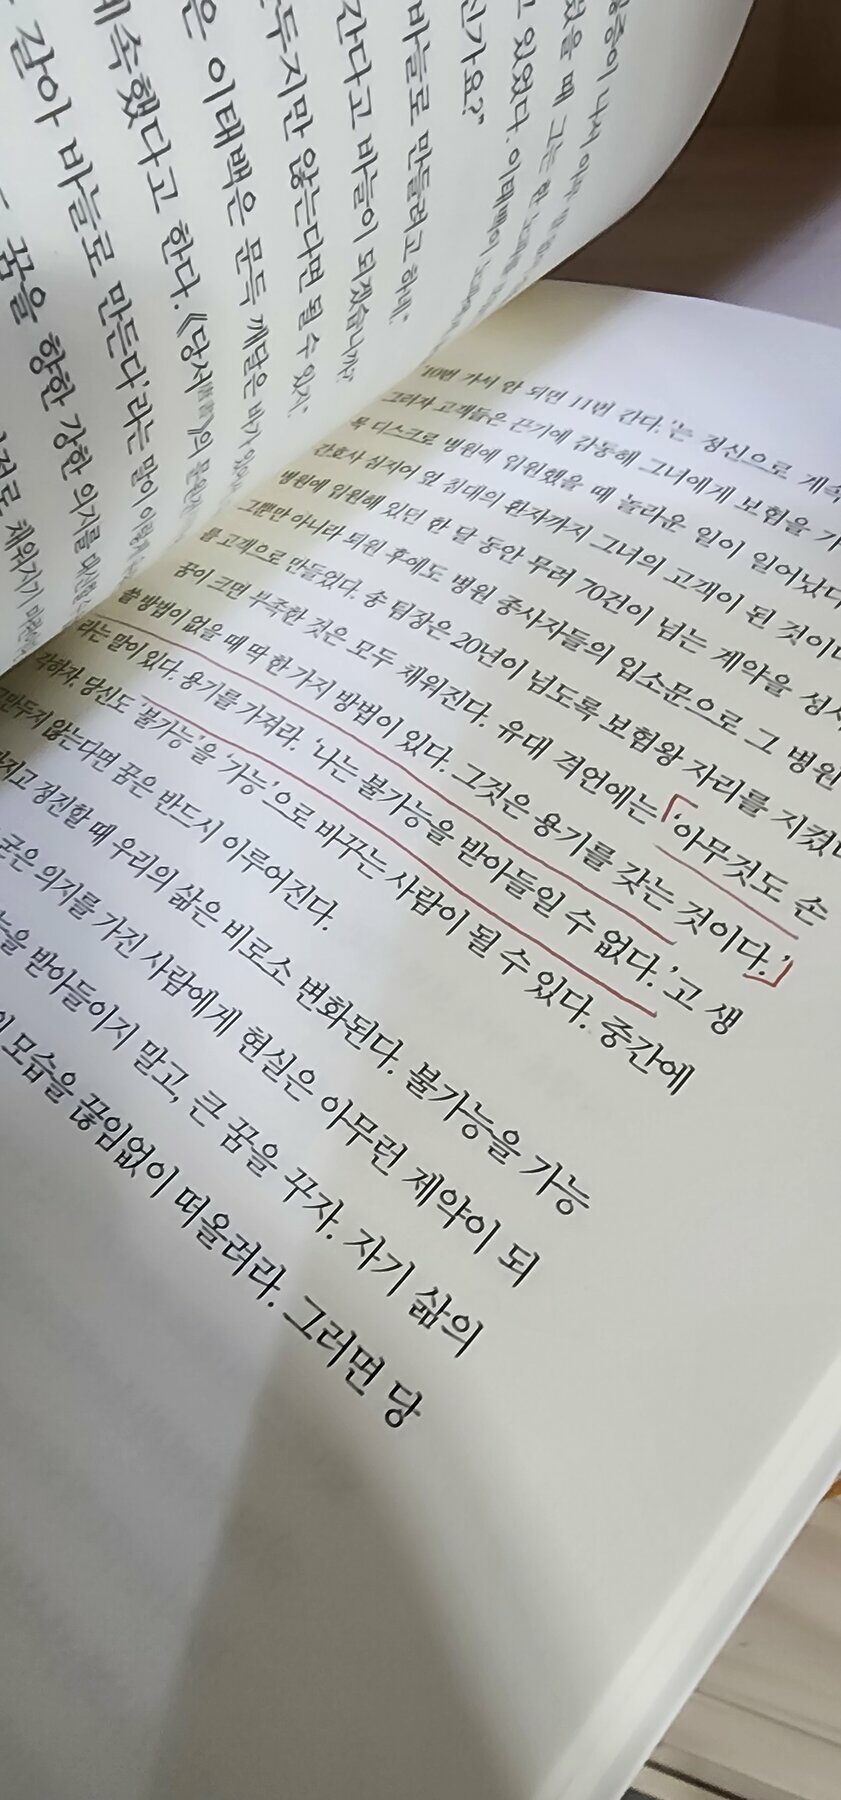 갈아 바늘로 만든다'라는 말이
계속했다고 한다. 《당서唐書》의
은 이태백은 문득 깨달은 바가
두지만 않는다면 될 수 있지."
간다고 바늘이 되겠습니까?"
바늘로 만들려고 하네."
신가요?"
고 있었다. 이태백이
었을 때 그는 한
꿈을 향한 강한 의지를
'10번 가서 안 되면 11번 간다.'는 정신으로 계속
그러자 고객들은 끈기에 감동해 그녀에게 보험을 가
목 디스크로 병원에 입원했을 때 놀라운 일이 일어났다
간호사 심지어 옆 침대의 환자까지 그녀의 고객이 된 것이다
병원에 입원해 있던 한 달 동안 무려 70건이 넘는 계약을 성사
그뿐만 아니라 퇴원 후에도 병원 종사자들의 입소문으로 그 병원
를 고객으로 만들었다. 송 팀장은 20년이 넘도록 보험왕 자리를 지켰다
꿈이 크면 부족한 것은 모두 채워진다. 유대 격언에는 '아무것도 손
쓸 방법이 없을 때 딱 한 가지 방법이 있다. 그것은 용기를 갖는 것이다.'
라는 말이 있다. 용기를 가져라. '나는 불가능을 받아들일 수 없다.'고 생
각하자. 당신도 '불가능'을 '가능'으로 바꾸는 사람이 될 수 있다. 중간에
그만두지 않는다면 꿈은 반드시 이루어진다.
가지고 정진할 때 우리의 삶은 비로소 변화된다. 불가능을 가능
굳은 의지를 가진 사람에게 현실은 아무런 제약이 되
능을 받아들이지 말고, 큰 꿈을 꾸자. 자기 삶의
모습을 끊임없이 떠올려라. 그러면 당